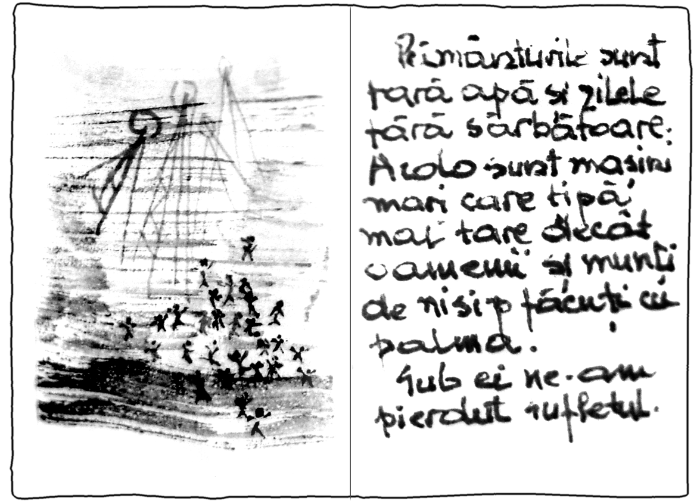 Pământurile sunt
fără apă și zilele
fără sărbătoare.
Acolo sunt mașini
mari care țipă
mai tare decât
oamenii și munți
de nisip făcuți cu
palma.
Sub ei ne-am
pierdut sufletul.